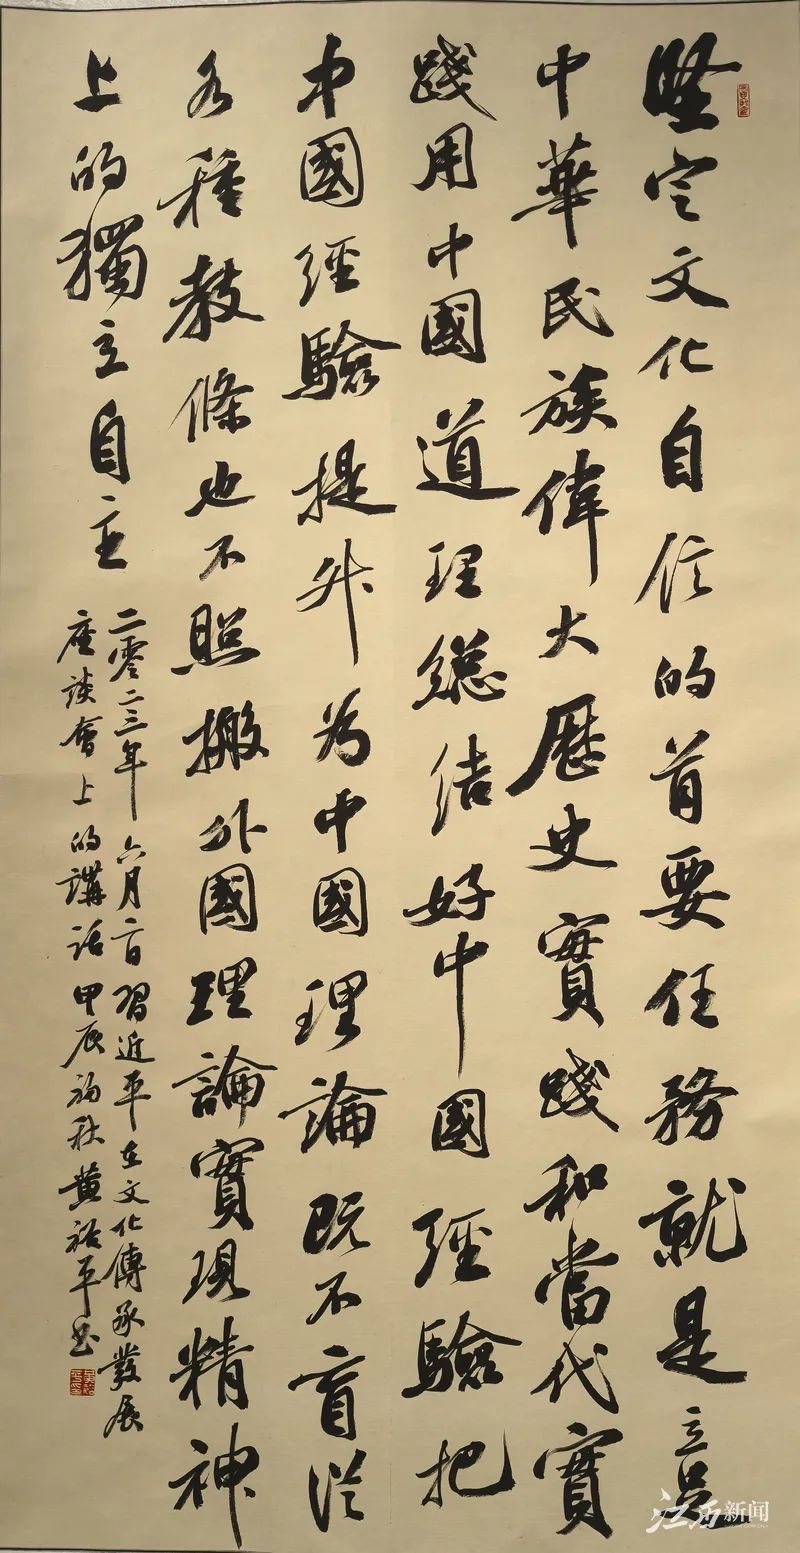 堅定文化自信的首要任務就是立足
中華民族偉大歷史實踐和當代實
踐用中國道理總結好中國經驗把
中國經驗提升為中國理論既不盲從
各種教條也不照搬外國理論實現精神
上的獨立自主
二零二三年六月二日習近平在文化傳承發展
座談會上的講話甲辰初秋黃裕平書
江西新闻